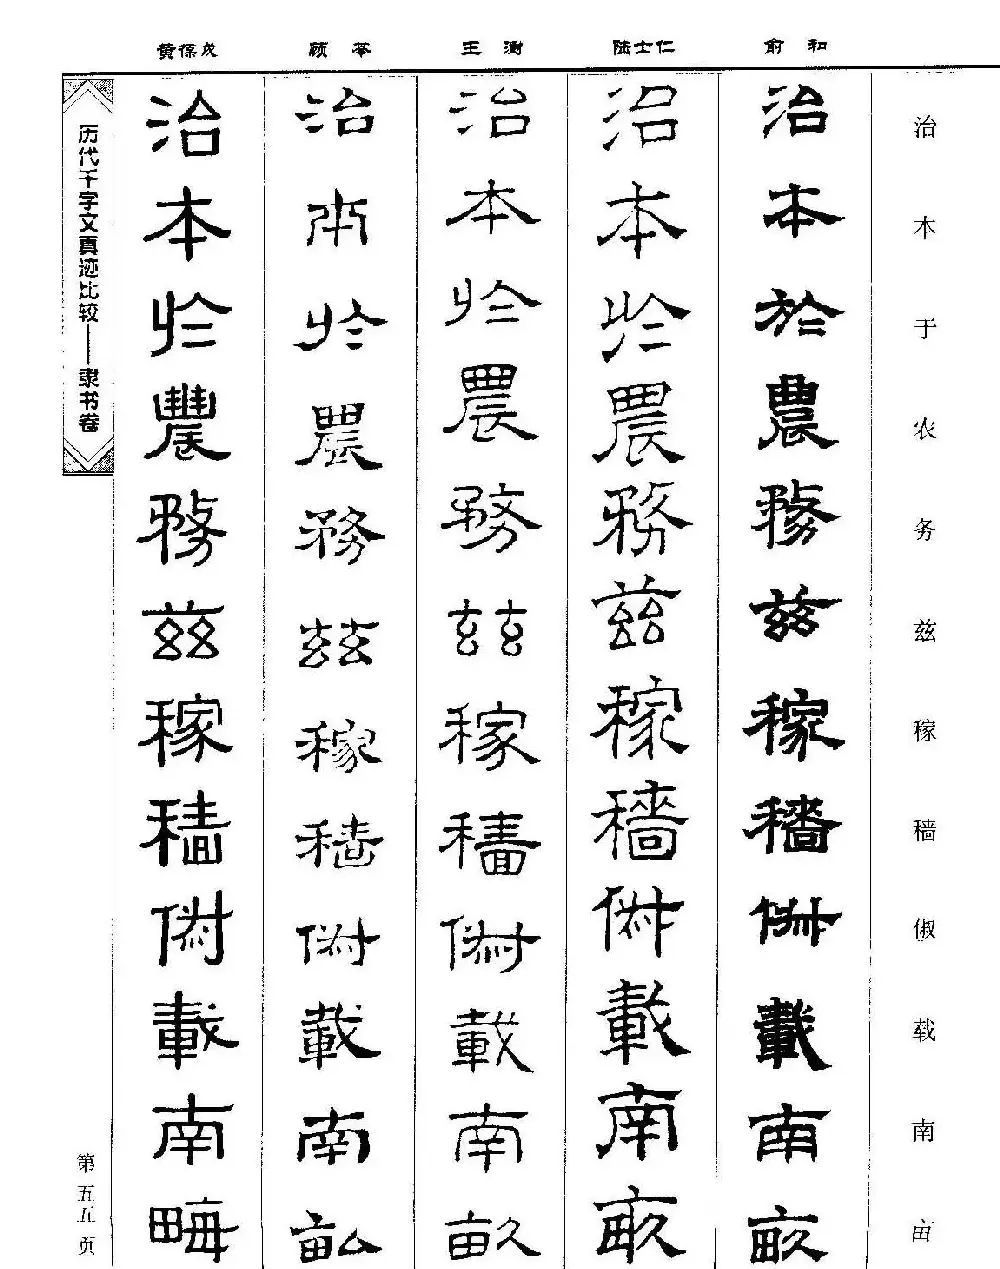 黄葆戉 顾苓 王澍 陆士仁 俞和
治本于农务兹稼穑俶载南亩
治本於農務兹稼穡俶載南畝
治本於農務兹稼穡俶載南畝
治本於農務兹稼穡俶載南畝
治本於農務兹稼穡俶載南畝
治本於農務兹稼穡俶載南畮
历代千字文真迹比较——隶书卷
第五五页